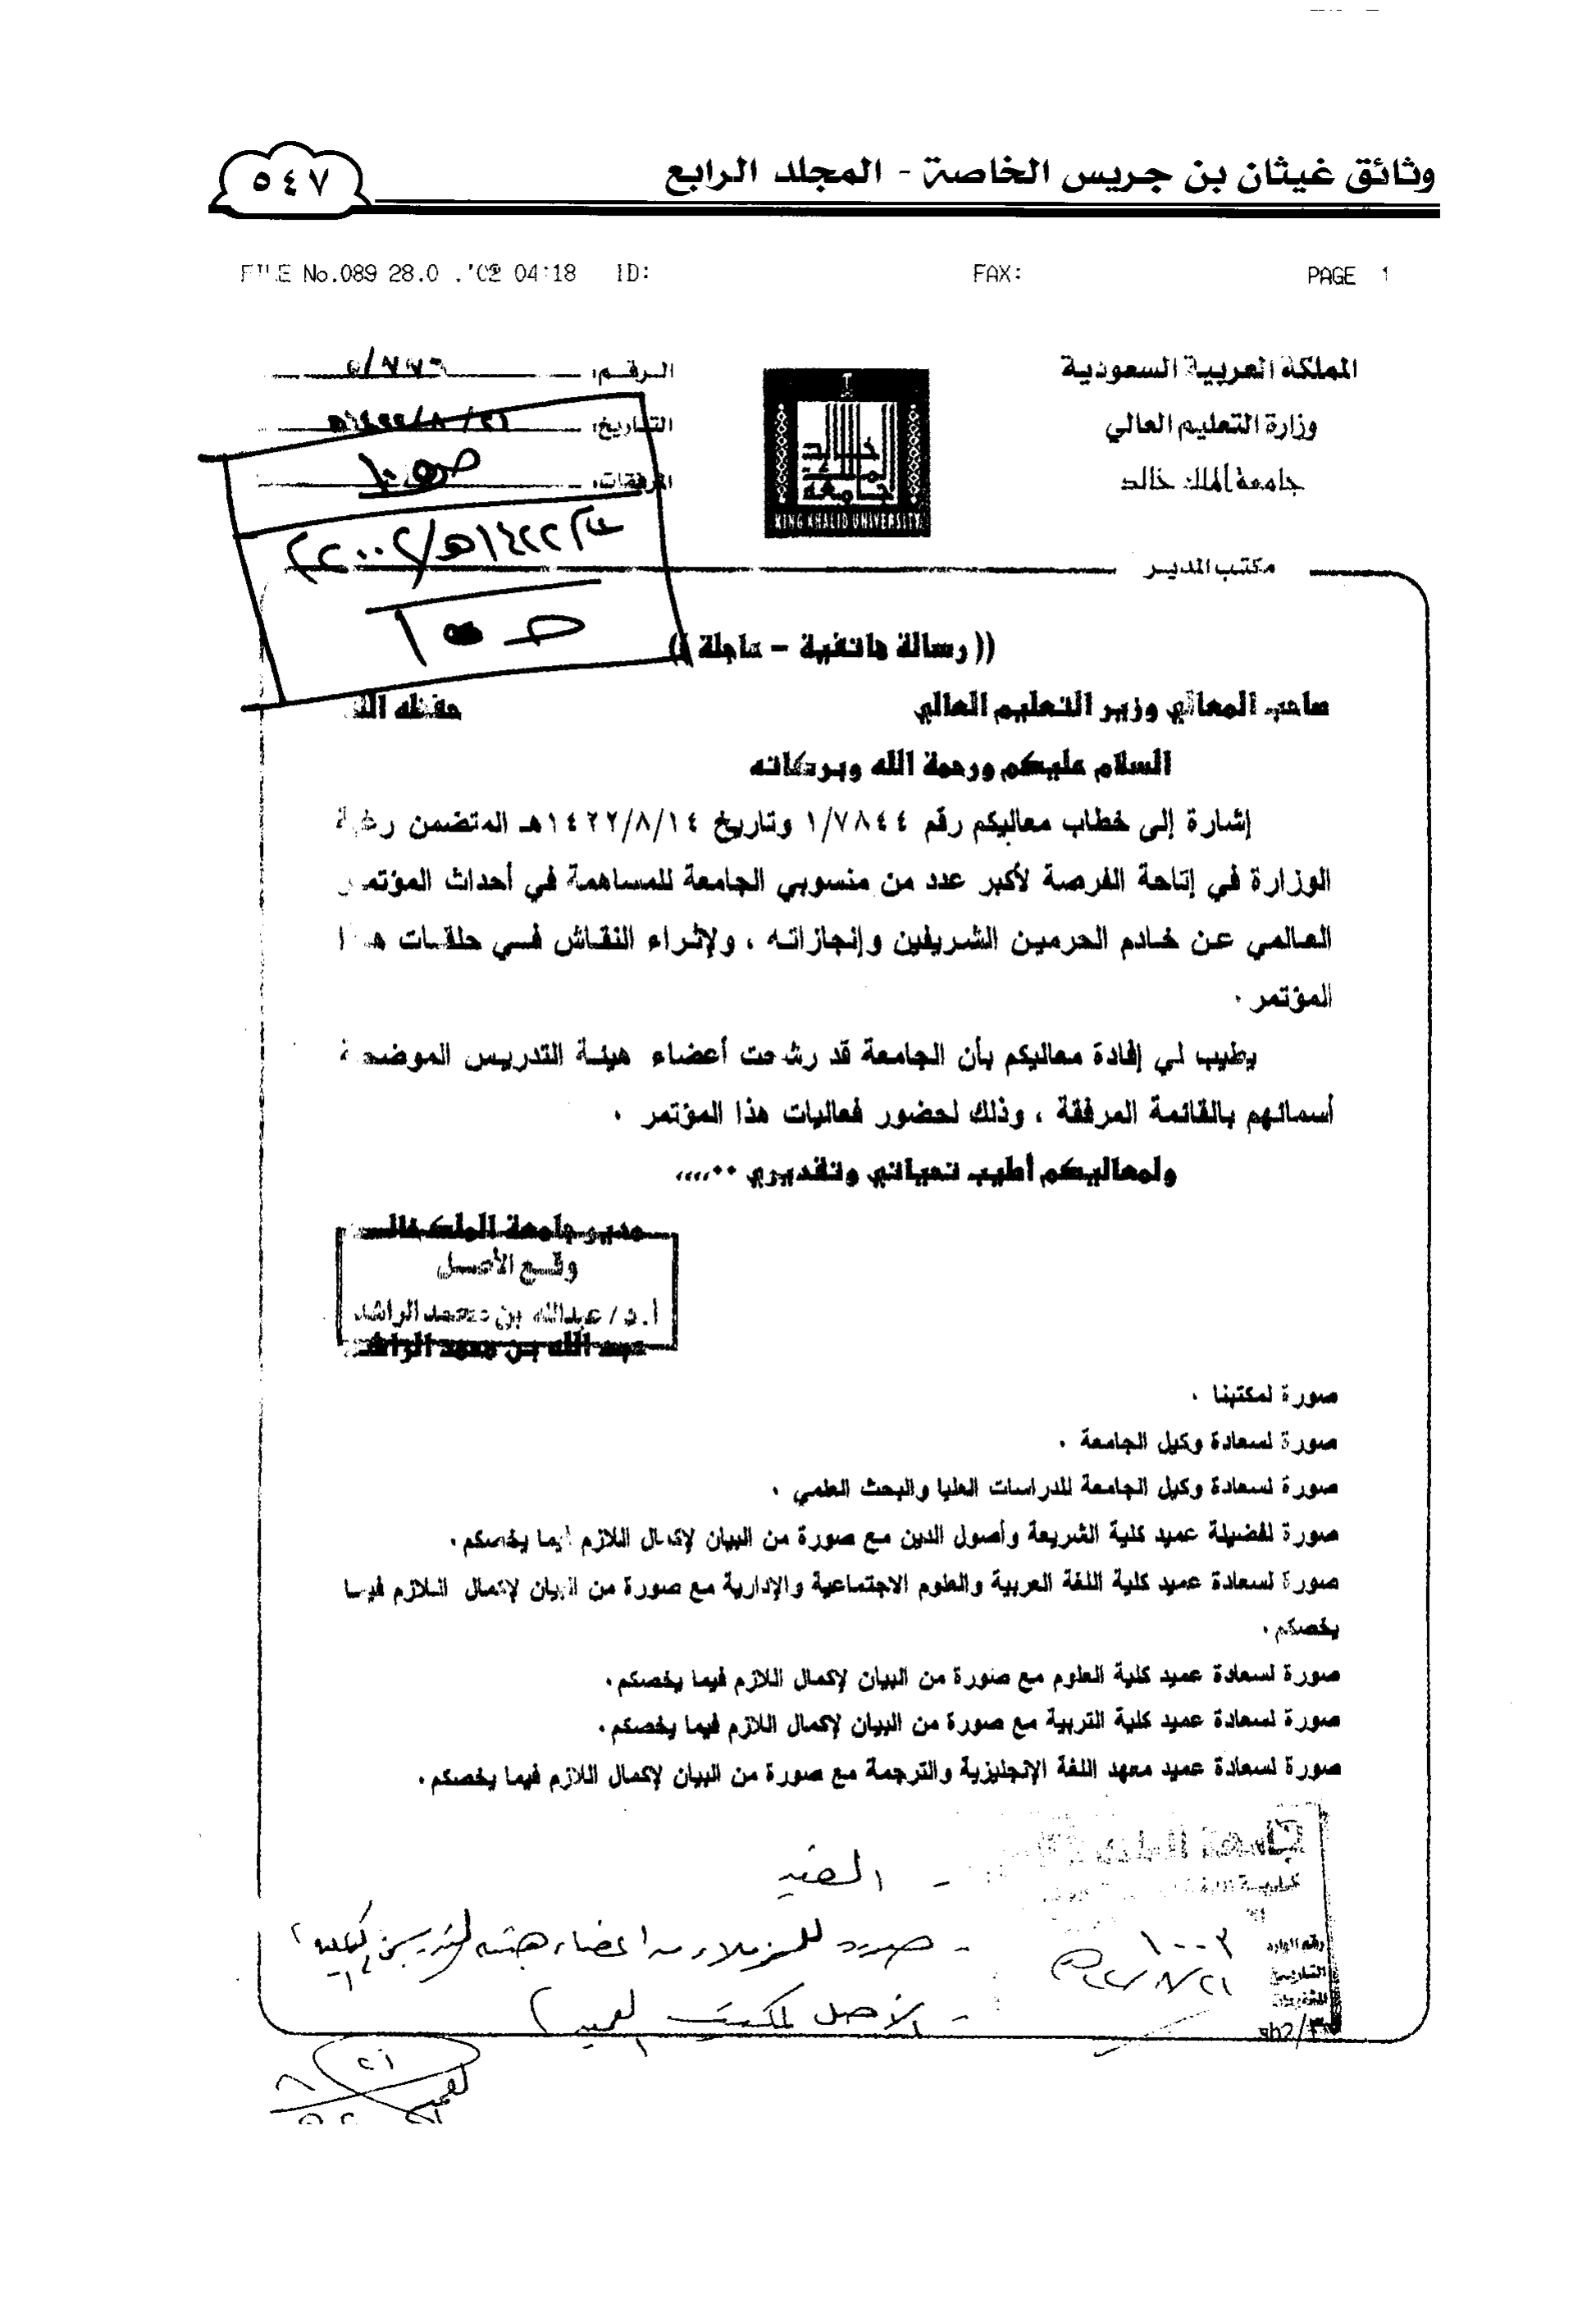 وثائق غيثان بن جريس الخاصة - المجلد الرابع
٥٤٧
FILE No.089 28.0 .'02 04:18 ID: FAX: PAGE 1
المملكة العربية السعودية
وزارة التعليم العالي
جامعة الملك خالد
مكتب المدير
KING KHALID UNIVERSITY
الرقم:
التاريخ:
المرفقات:
(( رسالة هاتفية - عاجلة ))
صاحب المعالي وزير التعليم العالي حفظه الله
السلام عليكم ورحمة الله وبركاته
إشارة إلى خطاب معاليكم رقم ١/٧٨٤٤ وتاريخ ١٤٢٢/٨/١٤هـ المتضمن رغبة
الوزارة في إتاحة الفرصة لأكبر عدد من منسوبي الجامعة للمساهمة في أحداث المؤتمر
العالمي عن خادم الحرمين الشريفين وإنجازاته ، ولإثراء النقاش في حلقات هذا
المؤتمر .
يطيب لي إفادة معاليكم بأن الجامعة قد رشحت أعضاء هيئة التدريس الموضحة
أسمائهم بالقائمة المرفقة ، وذلك لحضور فعاليات هذا المؤتمر .
ولمعاليكم أطيب تحياتي وتقديري ..،،،،
مدير جامعة الملك خالد
وقع الأصل
أ.د/ عبدالله بن محمد الراشد
عبد الله بن محمد الراشد
صورة لمكتبنا .
صورة لسعادة وكيل الجامعة .
صورة لسعادة وكيل الجامعة للدراسات العليا والبحث العلمي .
صورة لفضيلة عميد كلية الشريعة وأصول الدين مع صورة من البيان لإكمال اللازم فيما يخصكم.
صورة لسعادة عميد كلية اللغة العربية والعلوم الاجتماعية والإدارية مع صورة من البيان لإكمال اللازم فيما
يخصكم.
صورة لسعادة عميد كلية العلوم مع صورة من البيان لإكمال اللازم فيما يخصكم.
صورة لسعادة عميد كلية التربية مع صورة من البيان لإكمال اللازم فيما يخصكم.
صورة لسعادة عميد معهد اللغة الإنجليزية والترجمة مع صورة من البيان لإكمال اللازم فيما يخصكم.
رقم الوارد ١٠٠٣
التاريخ
- الأصل لمكتب العميد